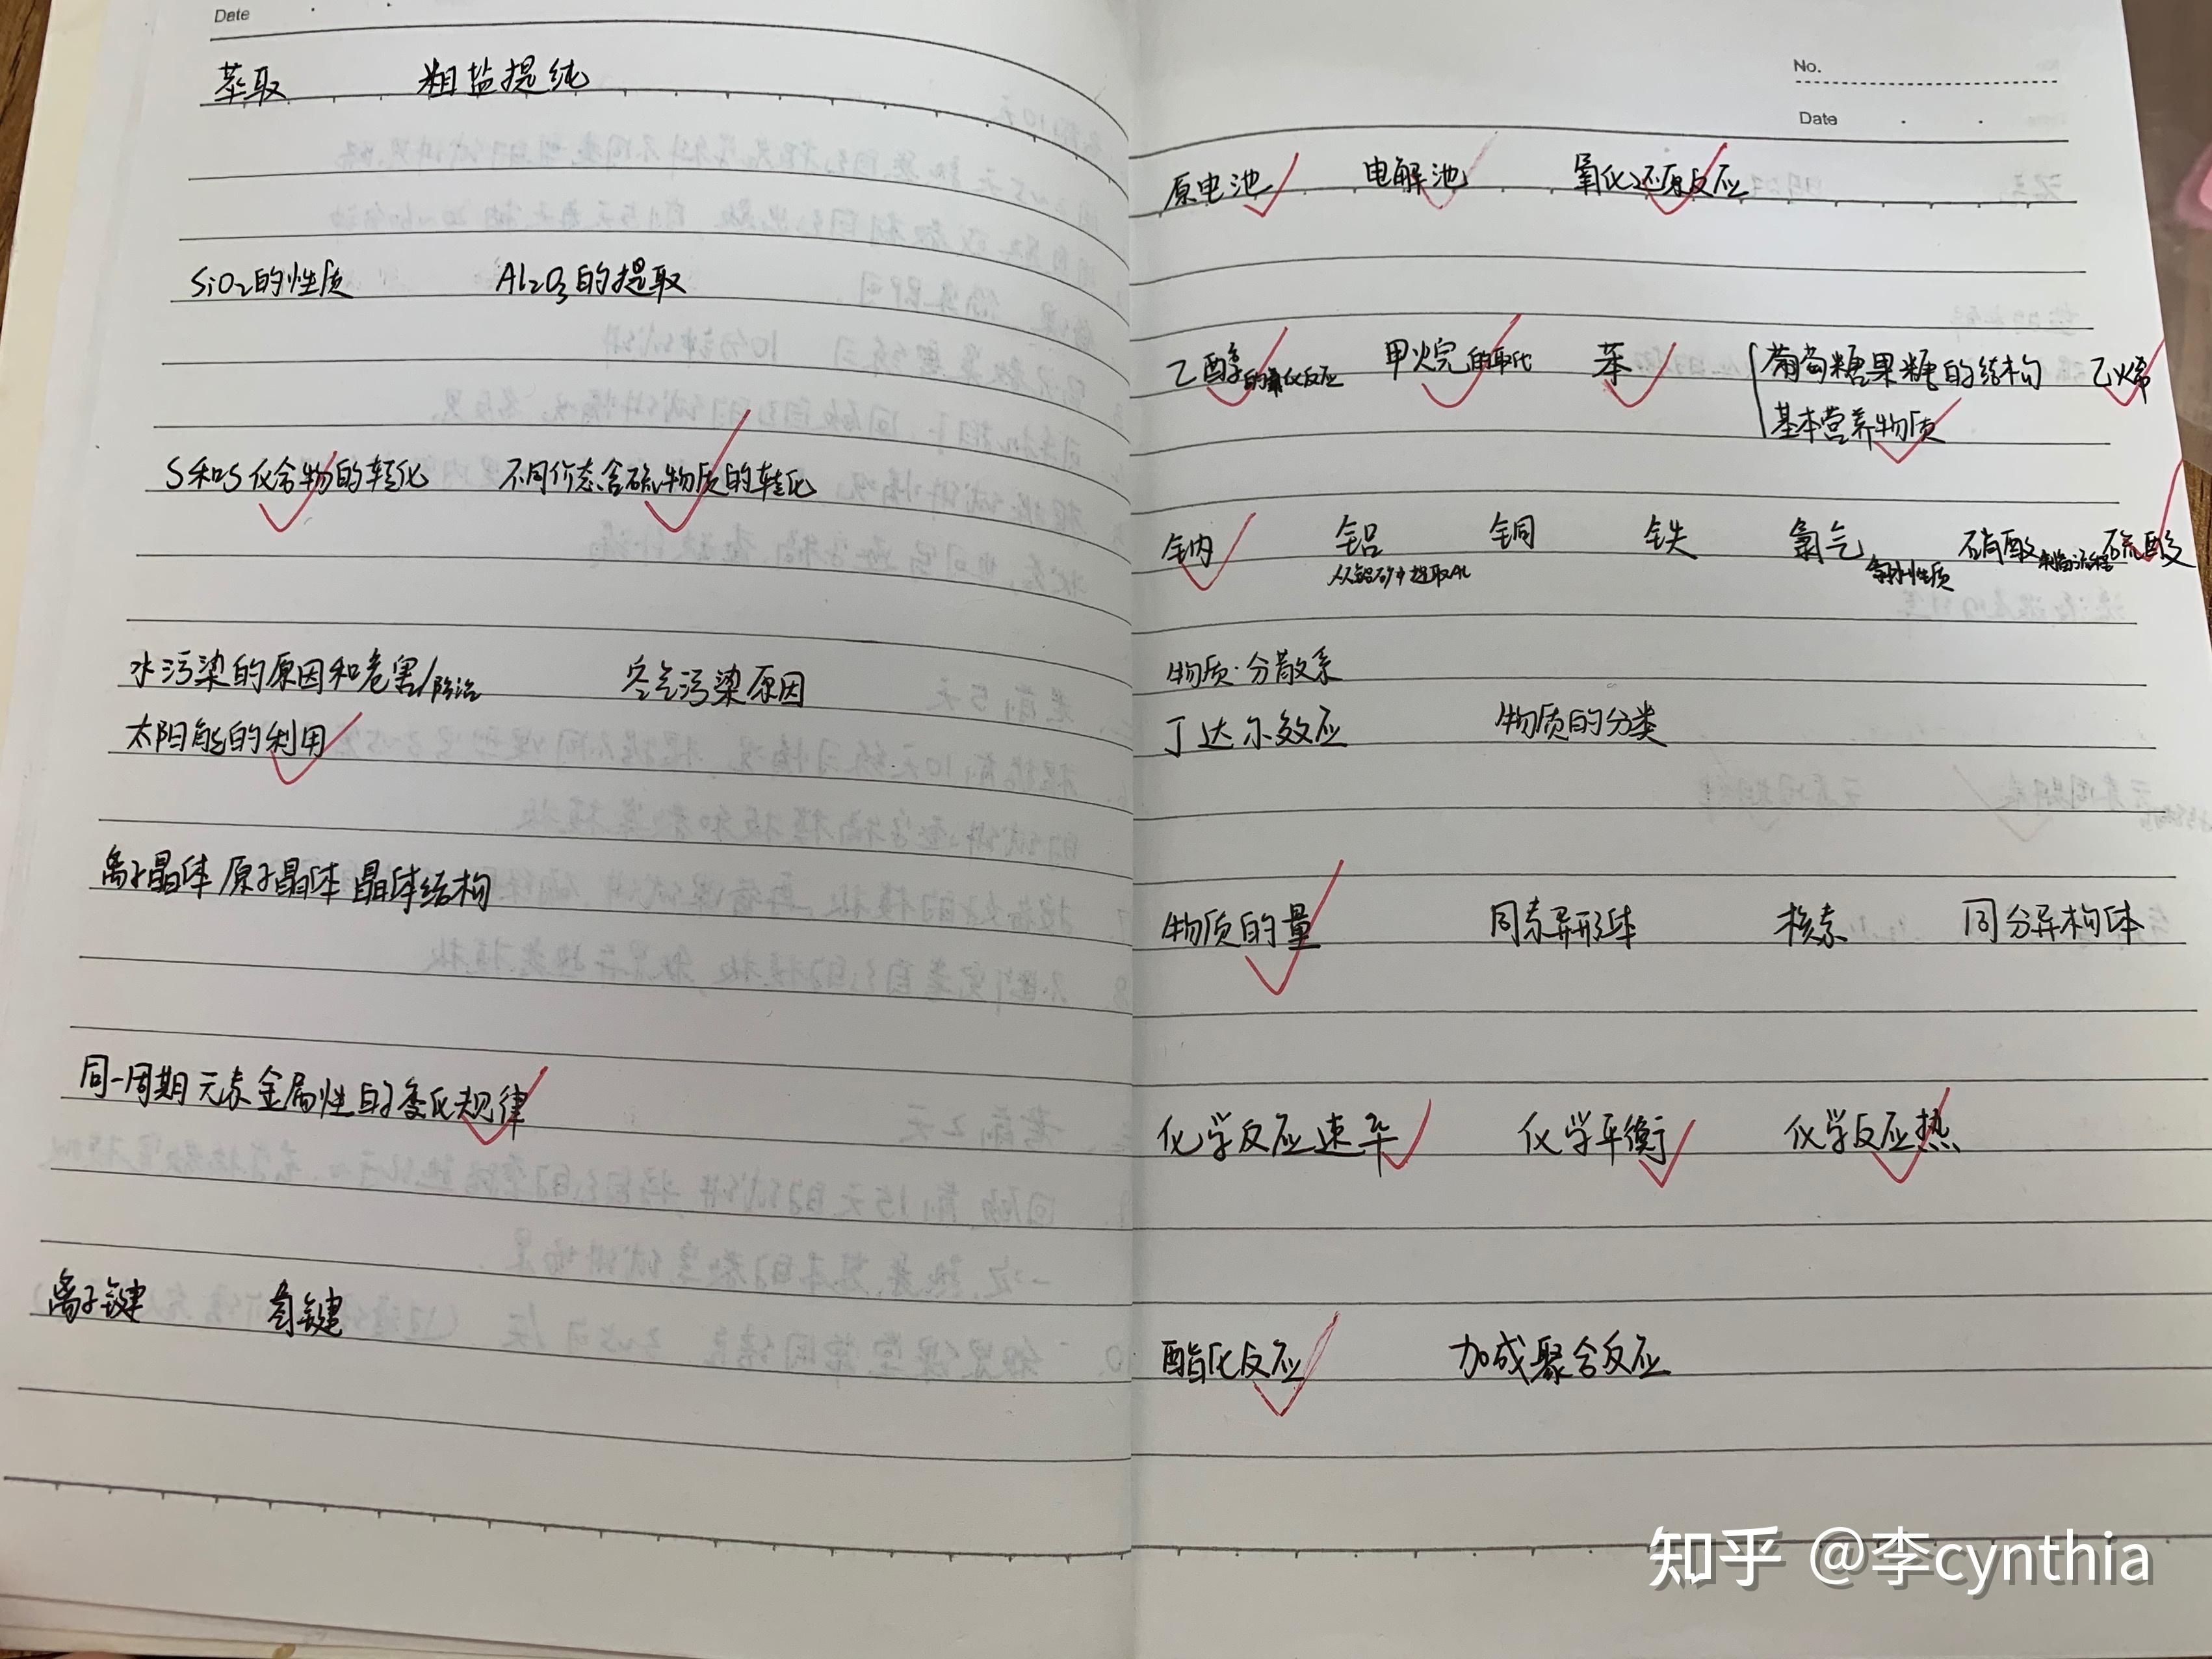 Date
萃取 粗盐提纯
SiO₂的性质 Al₂O₃的提取
S和S化合物的转化 不同价态含硫物质的转化
水污染的原因和危害/防治 空气污染原因
太阳能的利用
离子晶体 原子晶体 晶体结构
同一周期元素金属性的变化规律
离子键 共价键
No.
Date
原电池 电解池 氧化还原反应
乙醇的氧化反应 甲烷的取代 苯 葡萄糖果糖的结构 乙烯
基本营养物质
钠 铝 铜 铁 氯气 硝酸 硫酸
从铝矿中提取Al 氯水性质 制备流程
物质·分散系
丁达尔效应 物质的分类
物质的量 同素异形体 核素 同分异构体
化学反应速率 化学平衡 化学反应热
酯化反应 加成聚合反应
知乎 @李cynthia